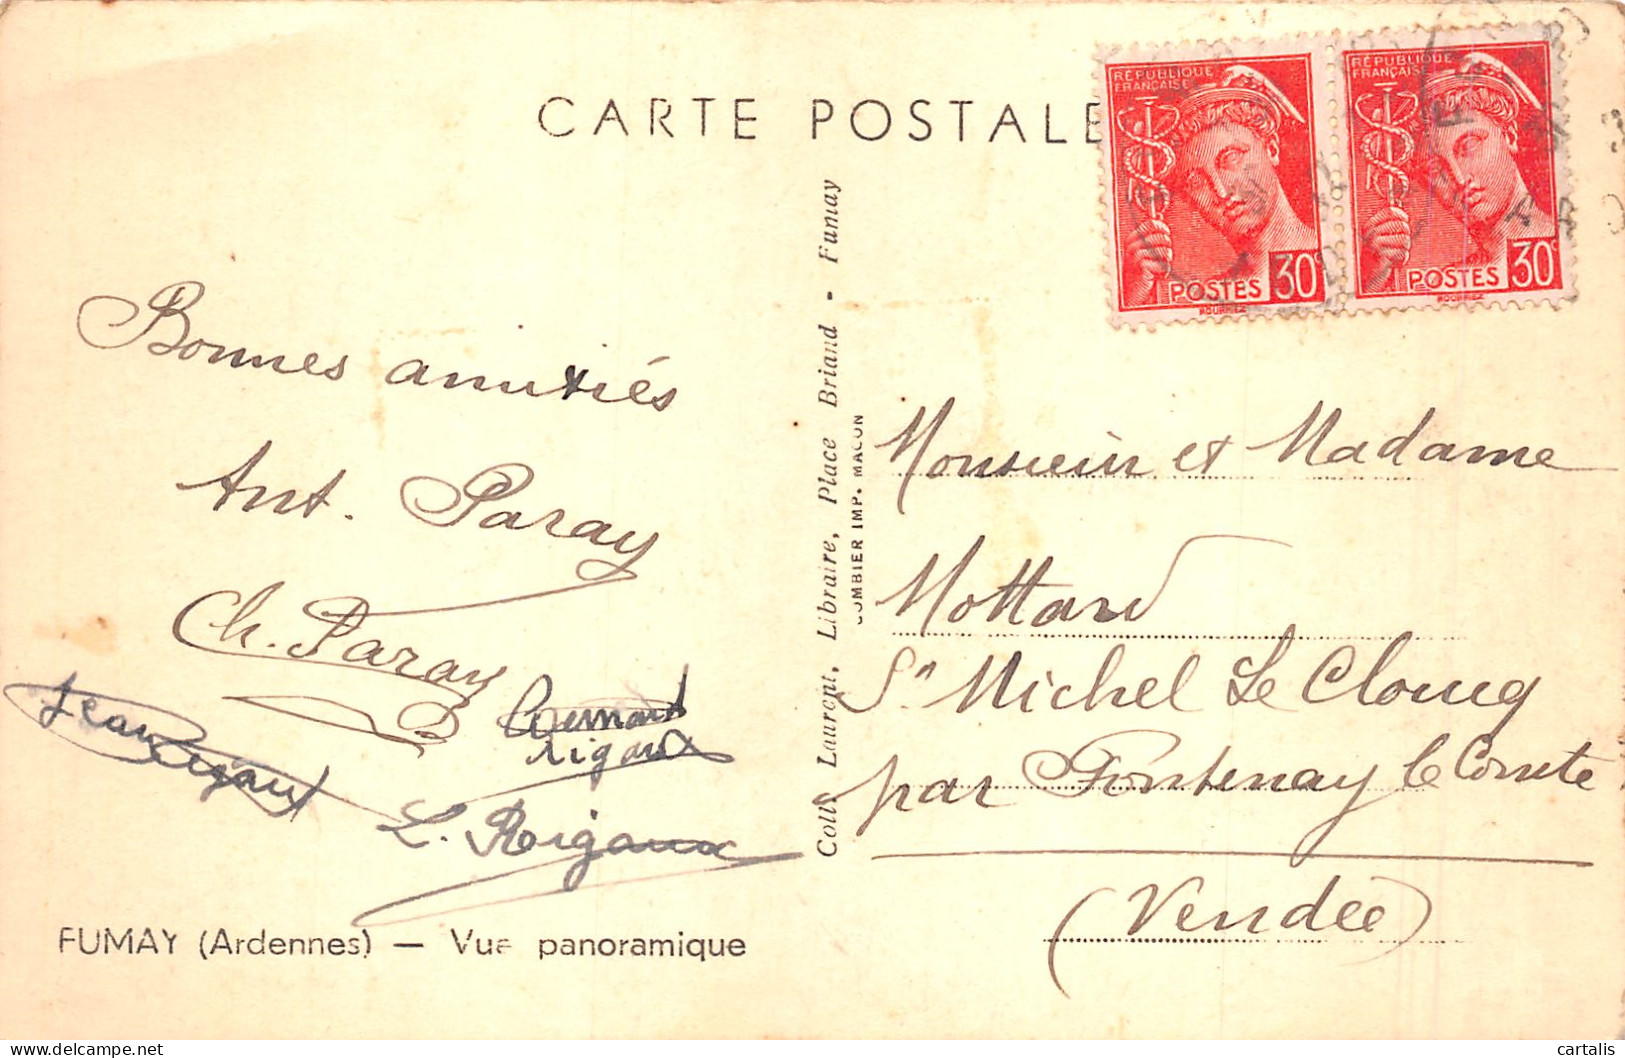 CARTE POSTALE
RÉPUBLIQUE
FRANÇAISE
POSTES 30c
MOURRIEZ
RÉPUBLIQUE
FRANÇAISE
POSTES 30c
MOURRIEZ
Bonnes amitiés
Ant. Paray
Ch. Paray
Jean Rigaux
Bernard
rigaux
L. Rigaux
FUMAY (Ardennes) — Vue panoramique
Coll. Laurent, Libraire, Place Briand - Fumay
COMBIER IMP. MACON
Monsieur et Madame
Mottard
St Michel Le Cloucq
par Fontenay le Comte
(Vendée)
cartalis